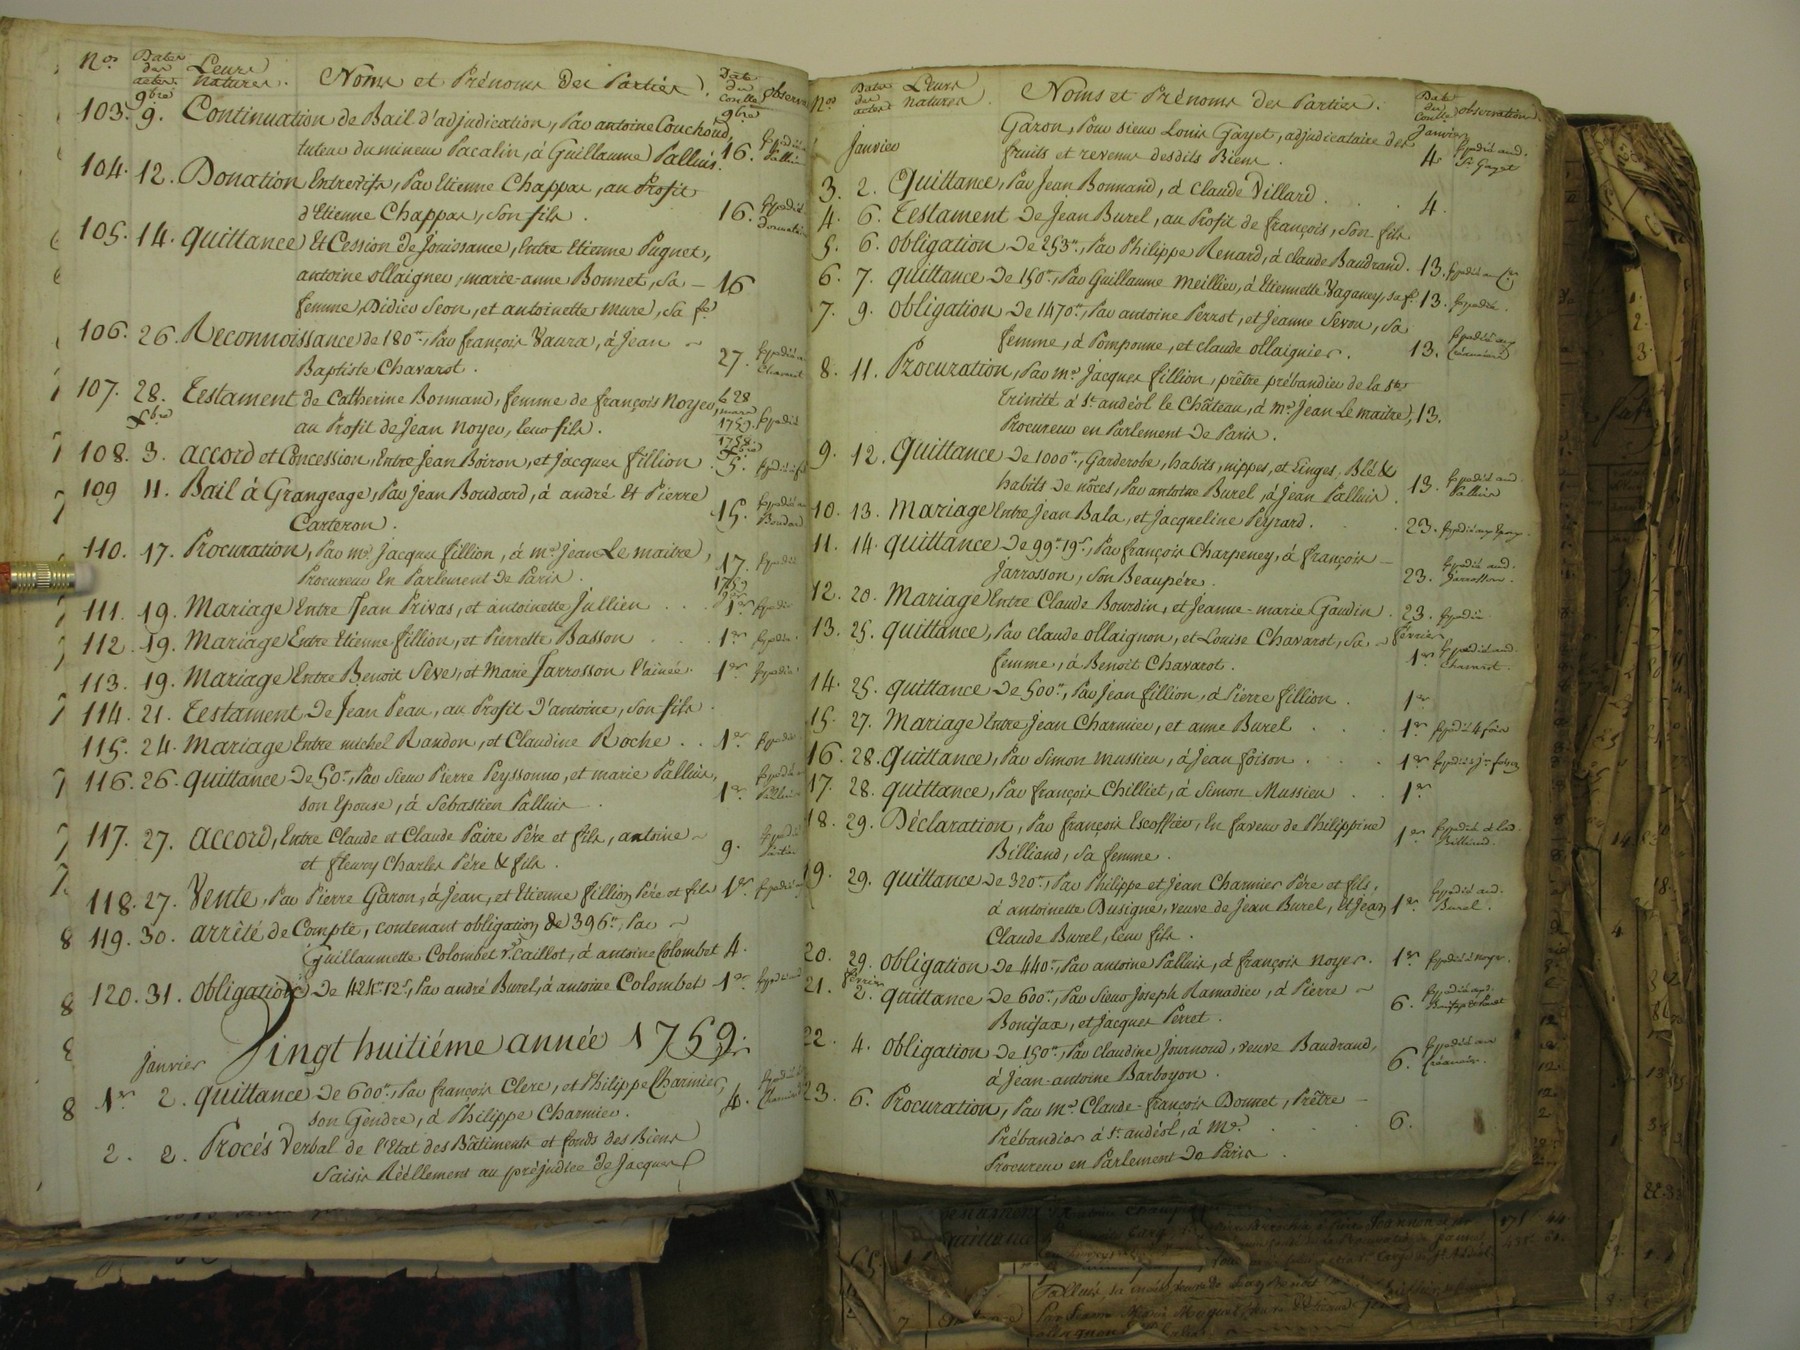 Nos Dates des actes. Leurs natures. Noms et Prénoms des Parties. Date du Conlle observa
9bre 9bre
103. 9. Continuation de Bail d'adjudication, Par antoine Couchoud,
tuteur du mineur Pacalin, à Guillaume Palluis. 16.
104. 12. Donation Entrevifs, Par Etienne Chappas, au Profit
d'Etienne Chappas, son fils. 16.
105. 14. quittance Et Cession de Jouissance, Entre Etienne Pugnet,
antoine ollaignier, marie-anne Bonnet, sa – 16
femme, Didier Seon, et antoinette mure, sa fe.
106. 26. Reconnoissance de 180tt, Par françois Vaura, à Jean ~
Baptiste Chavarot. 27.
107. 28. Testament de Catherine Bonnand, femme de françois Noyer, le 28 mars
au Profit de Jean Noyer, leur fils. 1759.
xbre 1758. xbre
108. 3. accord et Concession, Entre Jean Boiron, et Jacques fillion. 5.
109 11. Bail à Grangeage, Par Jean Boudard, à andré Et Pierre
Carteron. 15.
110. 17. Procuration, Par mre Jacques fillion, à me Jean Le maitre,
Procureur En Parlement de Paris. 17.
1759
111. 19. Mariage Entre Jean Privas, et antoinette Jullien . . 1er
112. 19. Mariage Entre Etienne fillion, et Pierrette Basson . . 1er
113. 19. Mariage Entre Benoit Seve, et Marie Jarrosson l'ainée. 1er
114. 21. Testament de Jean Peau, au Profit d'antoine, son fils .
115. 24. Mariage Entre michel Randon, et Claudine Roche . . 1er
116. 26. quittance de 50tt, Par Sieur Pierre Peyssonno, et marie Palluis,
son Epouse, à Sébastien Palluis . 1er
117. 27. accord, Entre Claude et Claude Paire Père et fils, antoine ~
et fleury Charles Père & fils. 9.
118. 27. Vente, Par Pierre Garon, à Jean, et Etienne fillion Père et fils 1er
119. 30. arrêté de Compte, contenant obligation de 396tt, Par ~
Guillaumette Colombet ve Caillot, à antoine Colombet 4.
120. 31. obligation de 424tt 12s, Par andré Burel, à antoine Colombet 1er
Vingt huitiéme année 1759.
janvier
1er 2. quittance de 600tt, Par françois Clere, et Philippe Charmier,
son Gendre, à Philippe Charmier. 4.
2. 2. Procés Verbal de l'Etat des Bâtiments et fonds des Biens
Saisis Réellement au préjudice de Jacques
Nos Dates des actes Leurs natures. Noms et Prénoms des Parties. Date du Conlle observations
Janvier Garon, Pour sieur Louis Gayet, adjudicataire des Janvier
fruits et revenus desdits Biens. 4. Expédié aud. Sr Gayet
3. 2. Quittance, Par Jean Bonnand, à Claude Villard . . . 4.
4. 6. Testament de Jean Burel, au Profit de françois, son fils
5. 6. obligation de 253tt, Par Philippe Renard, à claude Baudrand. 13.
6. 7. quittance de 150tt, Par Guillaume Meillier, à Etiennette Vaganey, sa fe. 13. Expédié.
7. 9. obligation de 1470tt, Par antoine Perrot, et Jeanne Sevou, sa
femme, à Pomponne, et claude ollaignier. 13. Expédié aux Créanciers
8. 11. Procuration, Par mre Jacques fillion, prêtre prébandier de la Ste
Trinité à St andéol le Château, à me Jean Le maitre, 13.
Procureur en Parlement de Paris.
9. 12. Quittance de 1000tt, Garderobe, habits, nippes, et Linges, Blé &
habits de nôces, Par antoine Burel, à Jean Palluis. 13. Expédié aud. Palluis
10. 13. Mariage Entre Jean Bala, et Jacqueline Peyrard. . . 23.
11. 14. quittance de 99tt 19s, Par françois Charpeney, à françois –
Jarrosson, son Beaupére. 23. Expédié aud. Jarrosson.
12. 20. Mariage Entre Claude Bourdin, et Jeanne-marie Gaudin. 23. Expédié
13. 25. quittance, Par claude ollaignon, et Louise Chavarot, sa – février
femme, à Benoit Chavarot. 1er Expédié aud. Chavarot.
14. 25. quittance de 500tt, Par Jean fillion, à Pierre fillion . 1er
15. 27. Mariage Entre Jean Charmier, et anne Burel . . . 1er Expédié 4 fois
16. 28. quittance, Par Simon mussieu, à Jean foison . . . 1er
17. 28. quittance, Par françois Chilliet, à Simon Mussieu . . 1er
18. 29. Déclaration, Par françois Escoffier, En faveur de Philippine
Billiand, sa femme. 1er Expédié à lad. Billiand.
19. 29. quittance de 320tt, Par Philippe et Jean Charmier Père et fils,
à antoinette Dusigne, veuve de Jean Burel, et Jean 1er Expédié aud. Burel.
Claude Burel, leur fils.
20. 29. obligation de 440tt, Par antoine Palluis, à françois Noyer. 1er Expédié à Noyer.
février
21. 2. quittance de 600tt, Par Sieur Joseph Ramadier, à Pierre ~
Bonifax, et Jacques Perret. 6.
22. 4. obligation de 150tt, Par Claudine Journoud, veuve Baudrand,
à Jean-antoine Barboyon. 6. Expédié au Créancier.
23. 6. Procuration, Par me Claude-françois Donnet, Prêtre –
Prébandier à St andéol, à Me. . . . 6.
Procureur en Parlement de Paris .